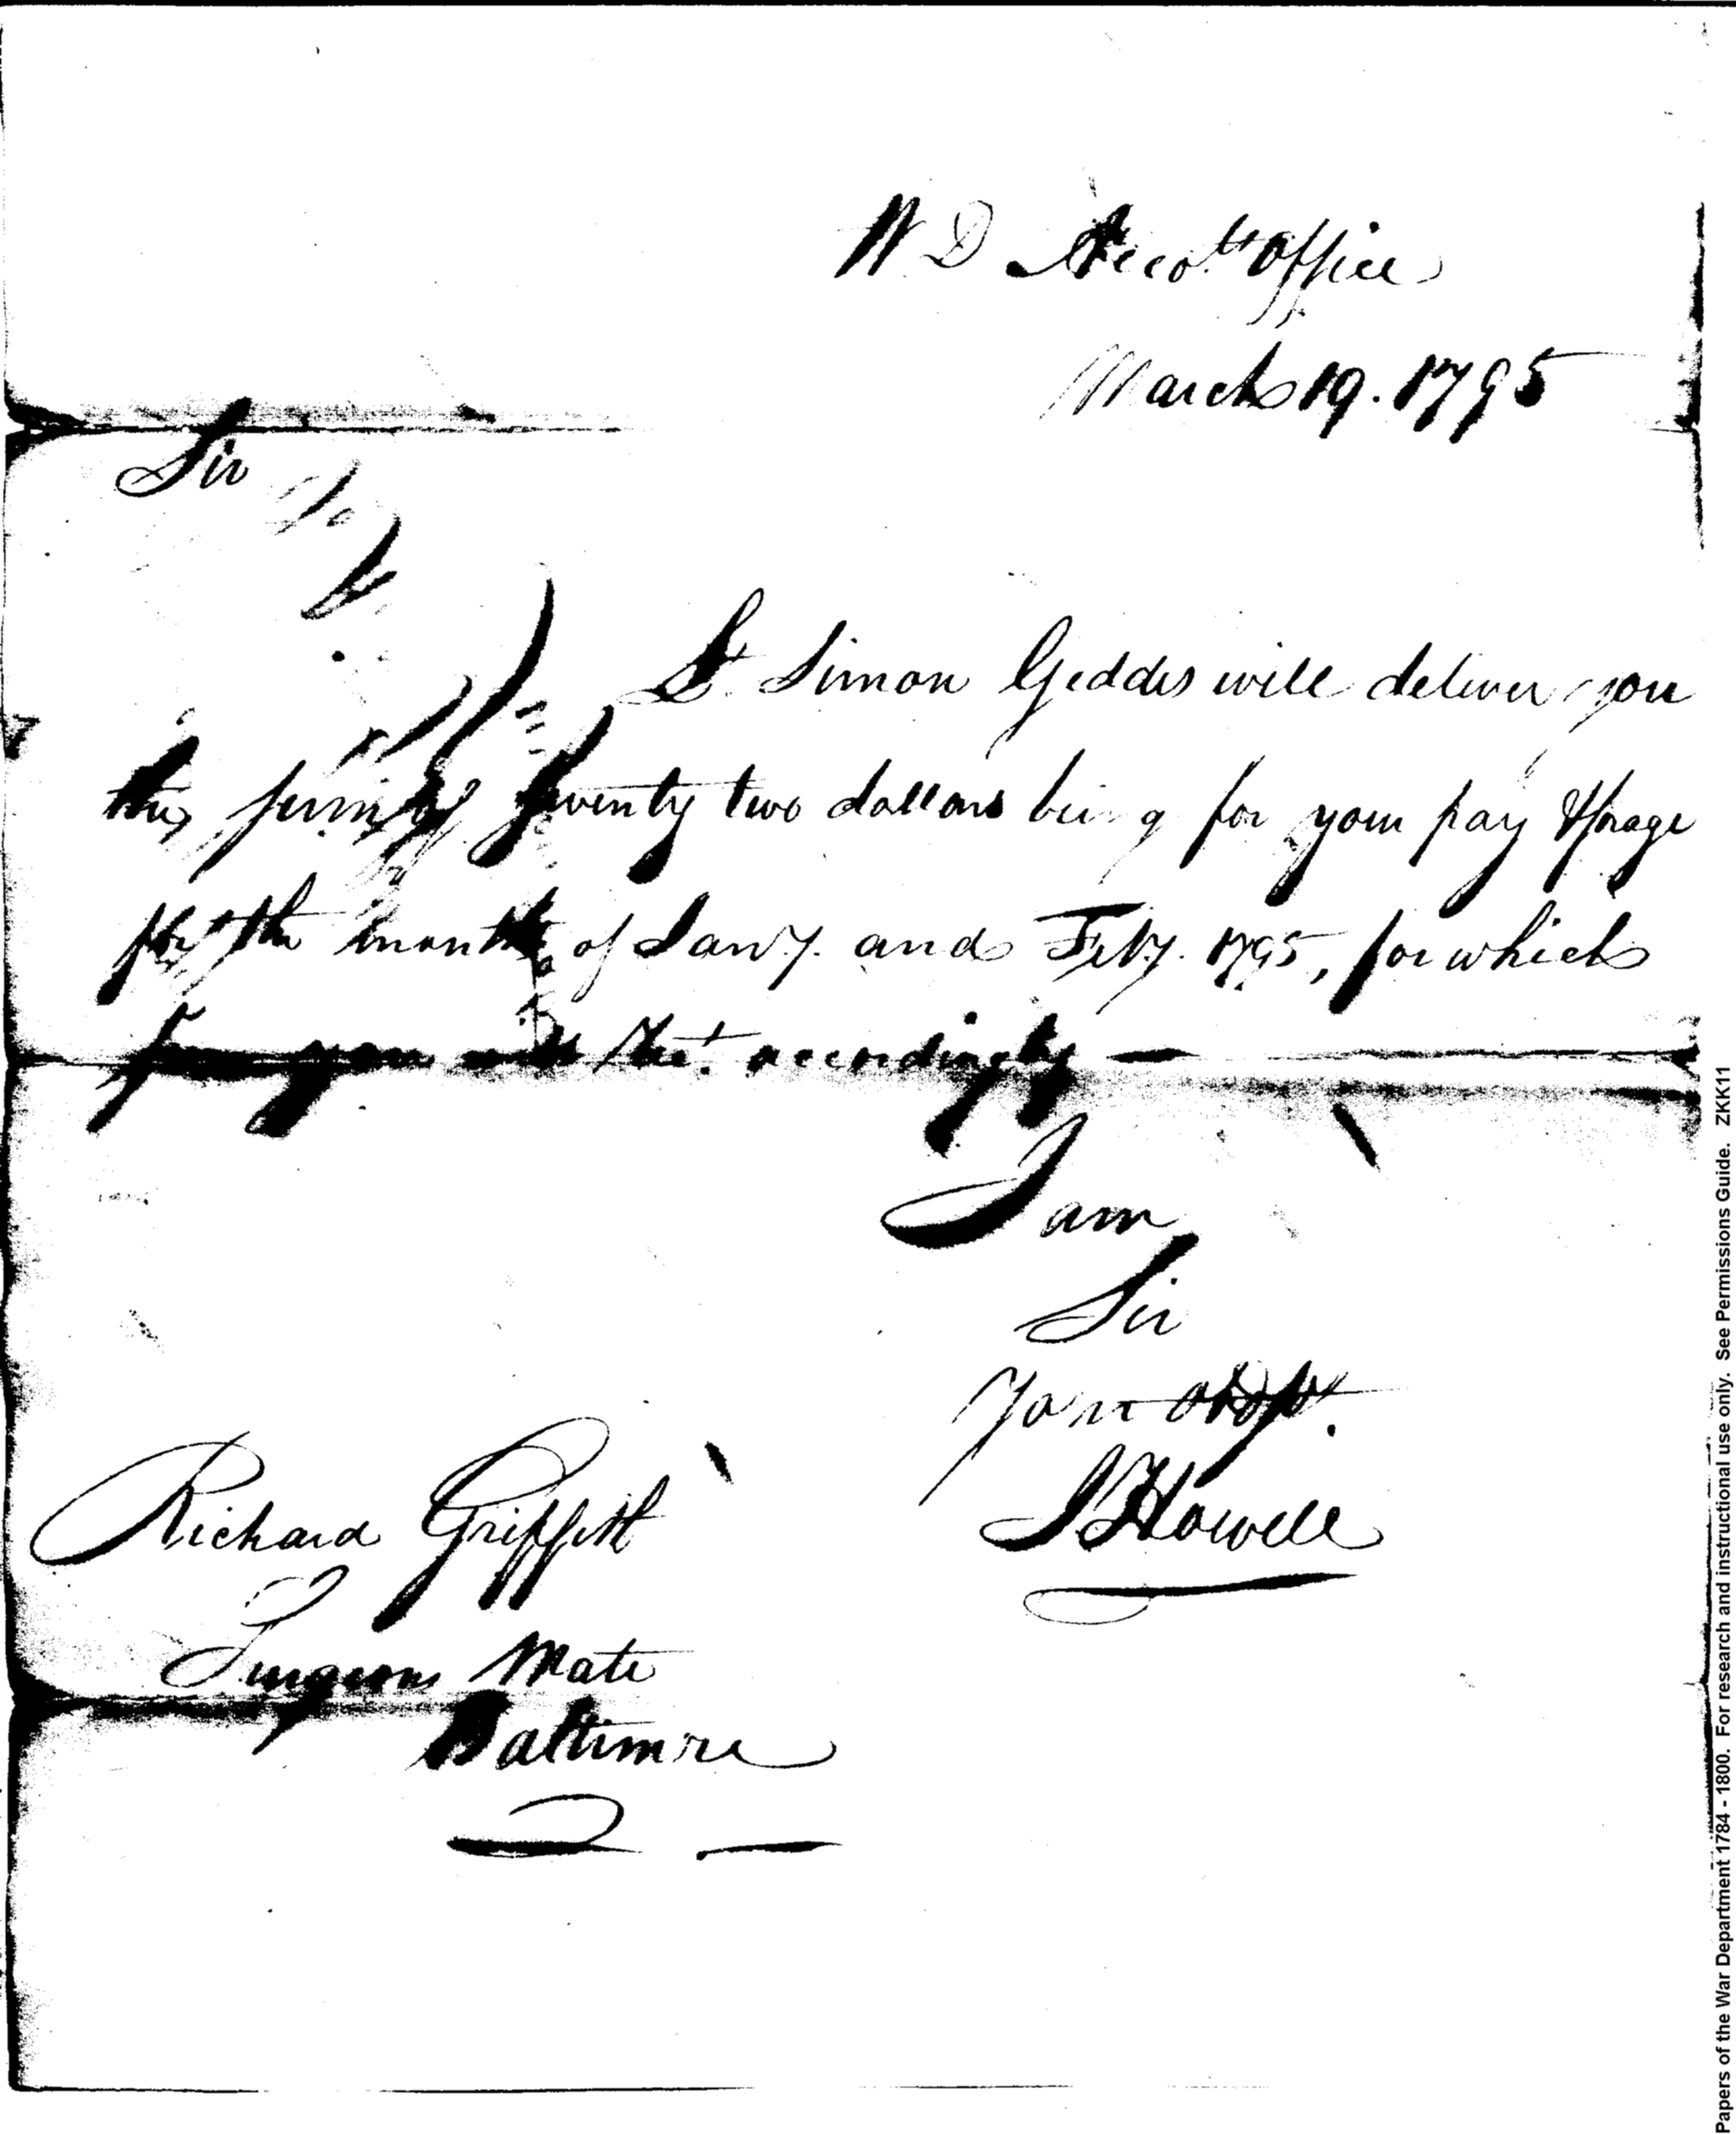 W. D Accots Office
March 19. 1795
Sir
Lt. Simon Geddes will deliver you
the sum of twenty two dollars being for your pay & forage
for the months of Jany. and Feby. 1795, for which
you will rect. accordingly —
I am
Sir
Your obdt.
J Howell
Richard Griffith
Surgeons Mate
Baltimore
Papers of the War Department 1784 - 1800. For research and instructional use only. See Permissions Guide. ZKK11